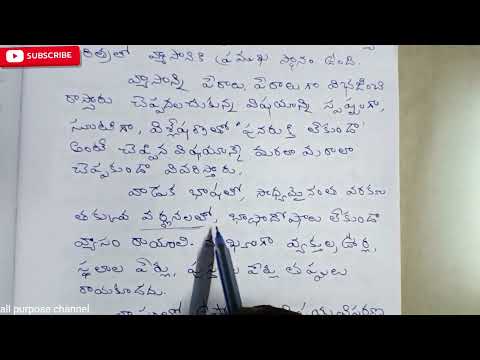 SUBSCRIBE
చరిత్రలో వ్యాసానికి ప్రముఖ స్థానం ఉంది.
వ్యాసాన్ని పేరాలు, పేరాలుగా విభజించి
రాస్తారు చెప్పదలచుకున్న విషయాన్ని స్పష్టంగా,
సూటిగా, విశ్లేషణతో 'పునరుక్తి లేకుండా'
అంటే చెప్పిన విషయాన్నే మరలా మరలా
చెప్పకుండా వివరిస్తారు.
వాడుక భాషలో, సాధ్యమైనంత వరకూ
తక్కువ వర్ణనలతో, భాషాదోషాలు లేకుండా
వ్యాసం రాయాలి. ముఖ్యంగా వ్యక్తుల, ఊర్ల,
స్థలాల పేర్లు, పుస్తకాల పేర్లు తప్పులు
రాయకూడదు.
all purpose channel